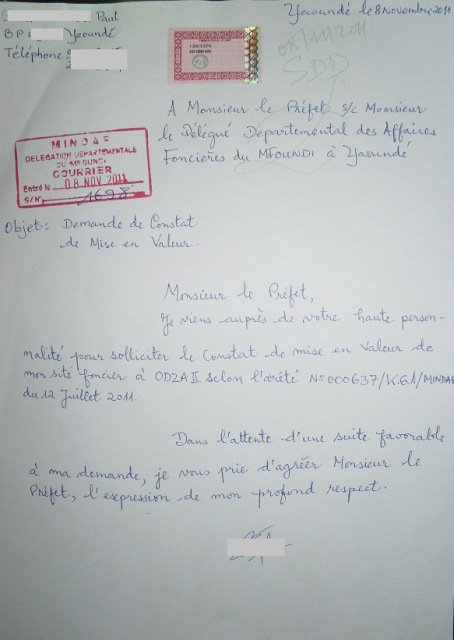 Paul
B P Yaoundé
Téléphone
Yaoundé le 8 Novembre 2011
08/11/2011
SDD
A Monsieur le Préfet s/c Monsieur
le Délégué Departemental des Affaires
Foncières du MFOUNDI à Yaoundé
MINDAF
DELEGATION DEPARTEMENTALE
DU MFOUNDI
COURRIER
Entré le 08 NOV 2011
S/N° 1698
Objet: Demande de Constat
de Mise en Valeur.
Monsieur le Préfet,
Je viens auprès de votre haute person-
nalité pour solliciter le Constat de mise en Valeur de
mon site foncier à ODZA II selon l'arrêté N°000637/V.61/MINDAF
du 12 Juillet 2011.
Dans l'attente d'une suite favorable
à ma demande, je vous prie d'agréer Monsieur le
Préfet, l'expression de mon profond respect.